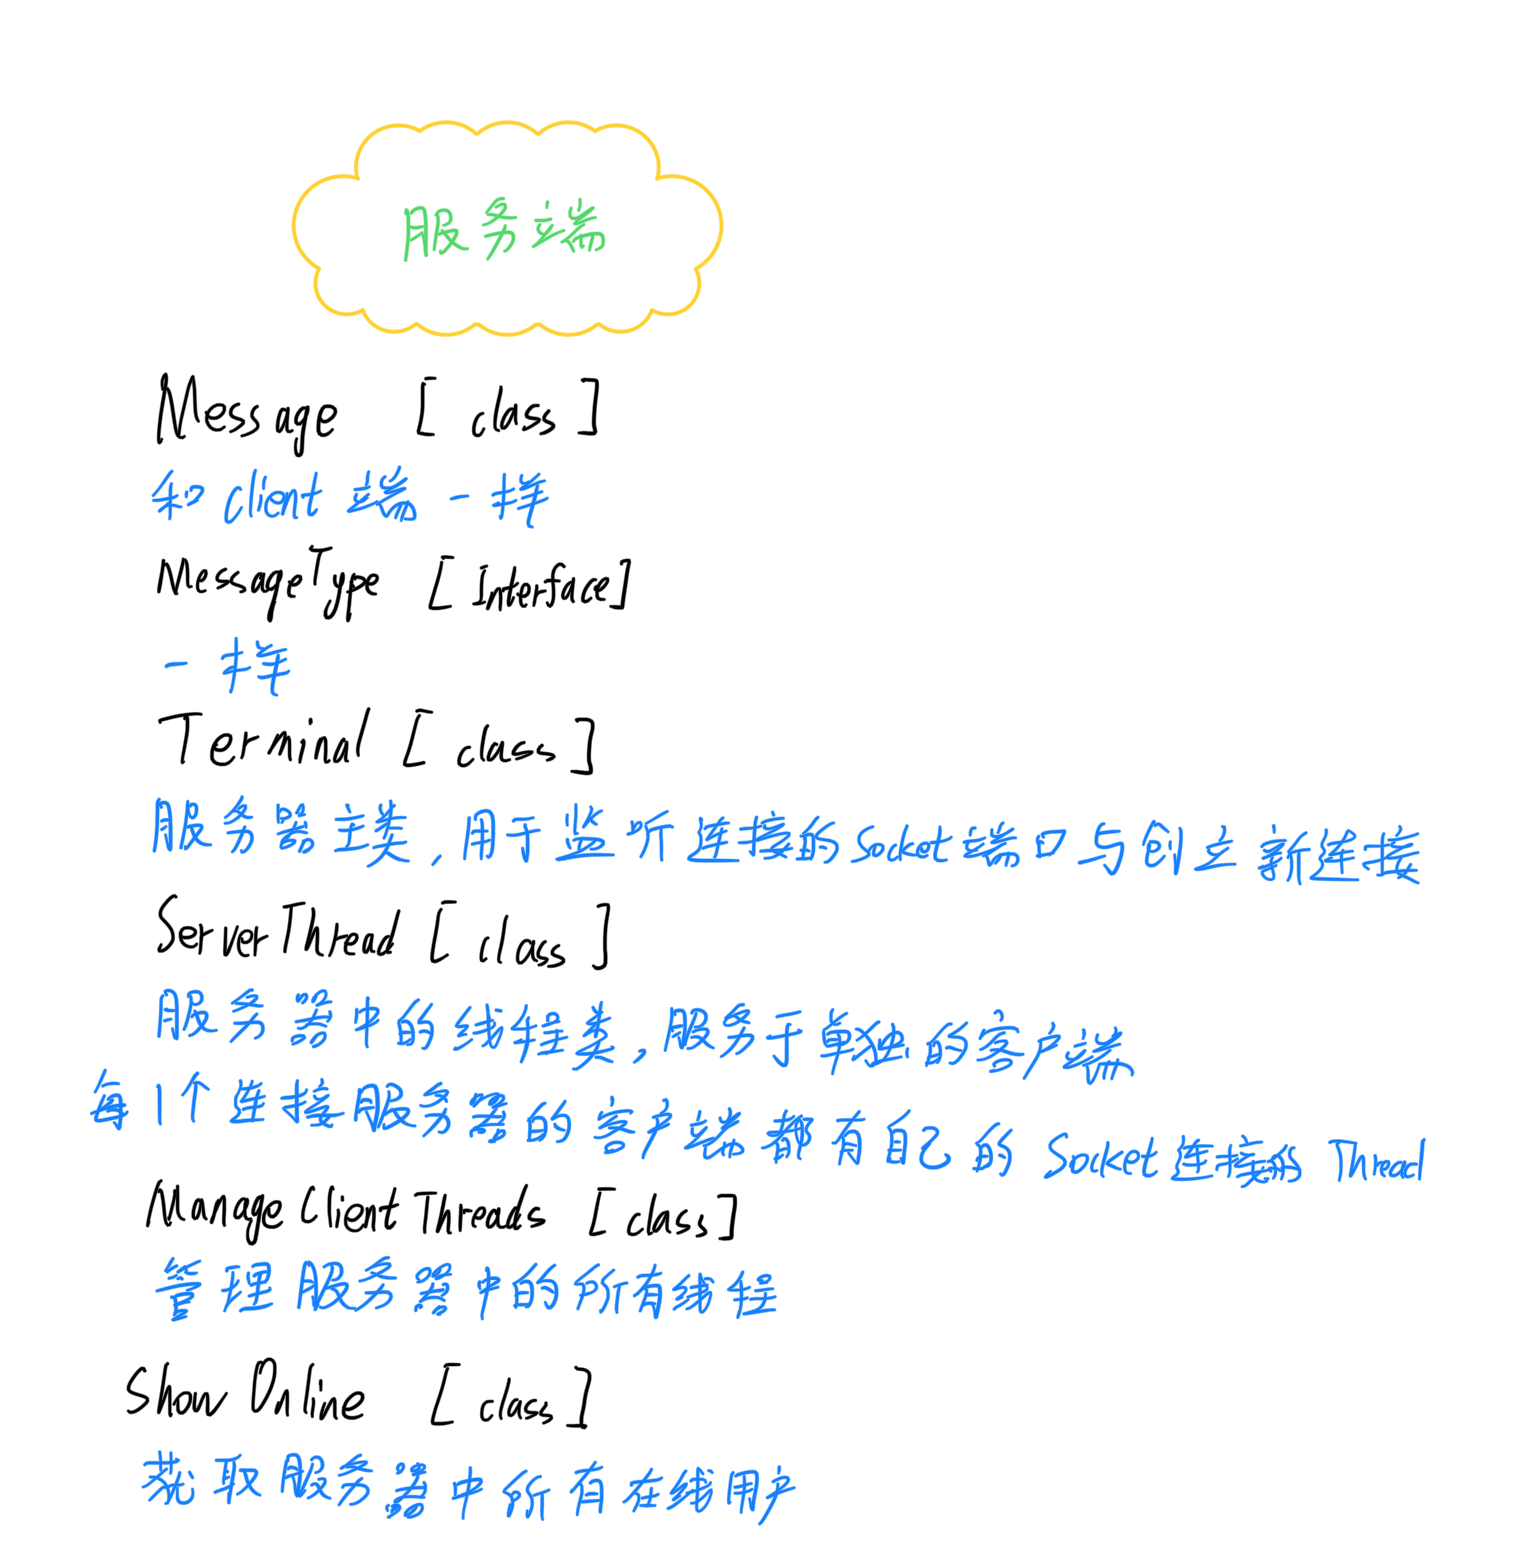 服务端
Message [ class ]
和 client 端 一样
MessageType [ Interface ]
一样
Terminal [ class ]
服务器主类,用于监听连接的Socket端口与创立新连接
ServerThread [ class ]
服务器中的线程类,服务于单独的客户端
每1个连接服务器的客户端都有自己的 Socket连接的 Thread
ManageClientThreads [ class ]
管理服务器中的所有线程
ShowOnline [ class ]
获取服务器中所有在线用户